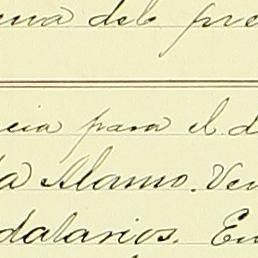 del pre
cia para el d
Alamo. Ven
dalarios. En